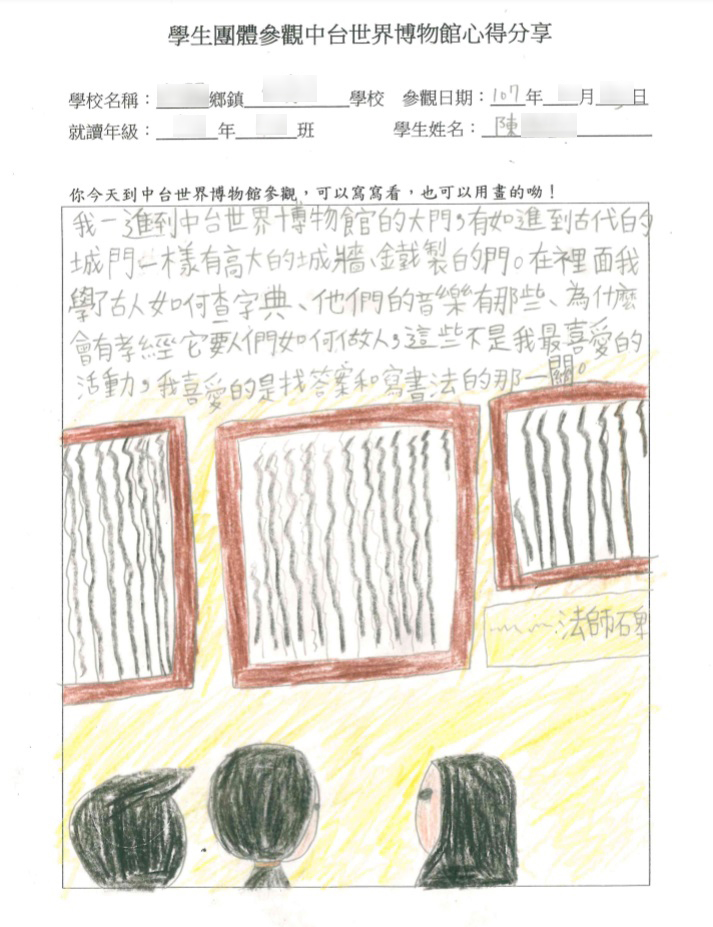 學生團體參觀中台世界博物館心得分享
學校名稱：鄉鎮學校 參觀日期：107年月日
就讀年級：年班 學生姓名：陳
你今天到中台世界博物館參觀，可以寫寫看，也可以用畫的呦！
我一進到中台世界博物館的大門，有如進到古代的
城門一樣有高大的城牆、鐵製的門。在裡面我
學了古人如何查字典、他們的音樂有那些、為什麼
會有孝經它要人們如何做人，這些不是我最喜愛的
活動，我喜愛的是找答案和寫書法的那一關。
法師碑